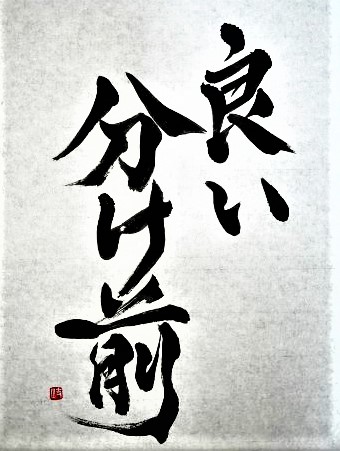 良い
分け前